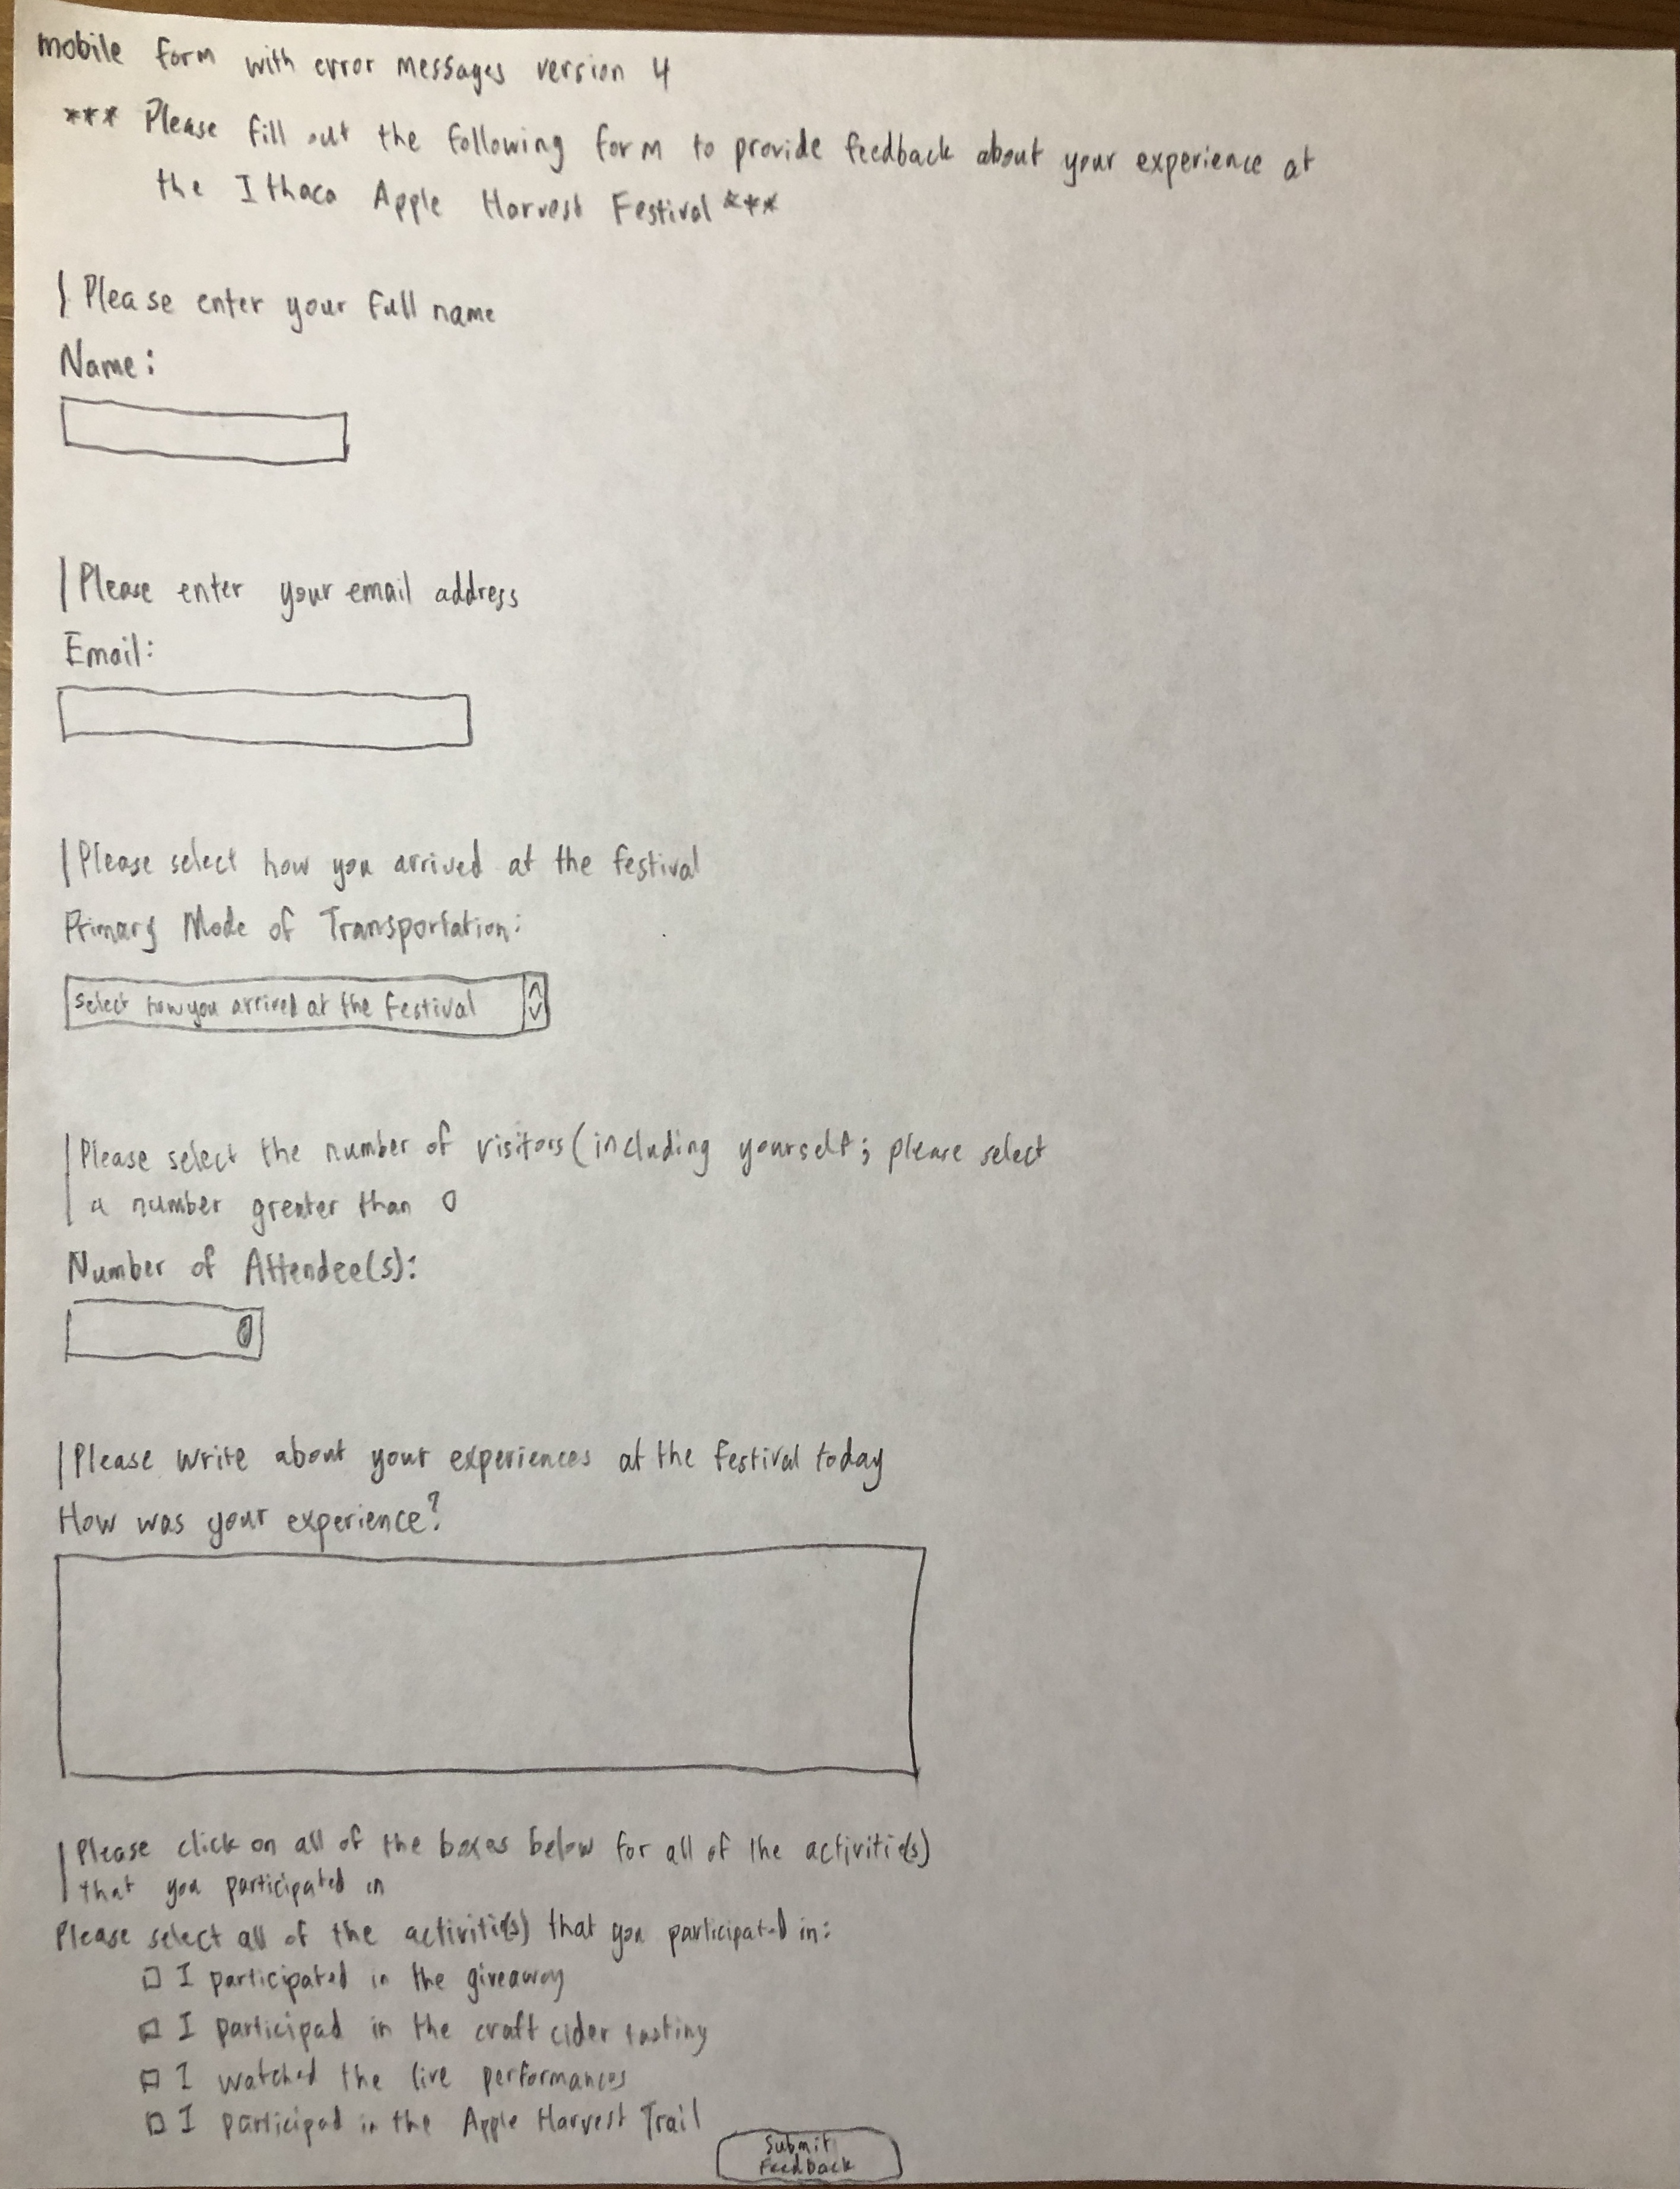 mobile form with error messages version 4
*** Please fill out the following form to provide feedback about your experience at
the Ithaca Apple Harvest Festival ***
| Please enter your full name
Name:
| Please enter your email address
Email:
| Please select how you arrived at the festival
Primary Mode of Transportation:
Select how you arrived at the festival
| Please select the number of visitors (including yourself; please select
| a number greater than 0
Number of Attendee(s):
0
| Please write about your experiences at the festival today
How was your experience?
| Please click on all of the boxes below for all of the activiti(s)
| that you participated in
Please select all of the activiti(s) that you participated in:
I participated in the giveaway
I participad in the craft cider tasting
I watched the live performances
I participad in the Apple Harvest Trail
Submit
Feedback